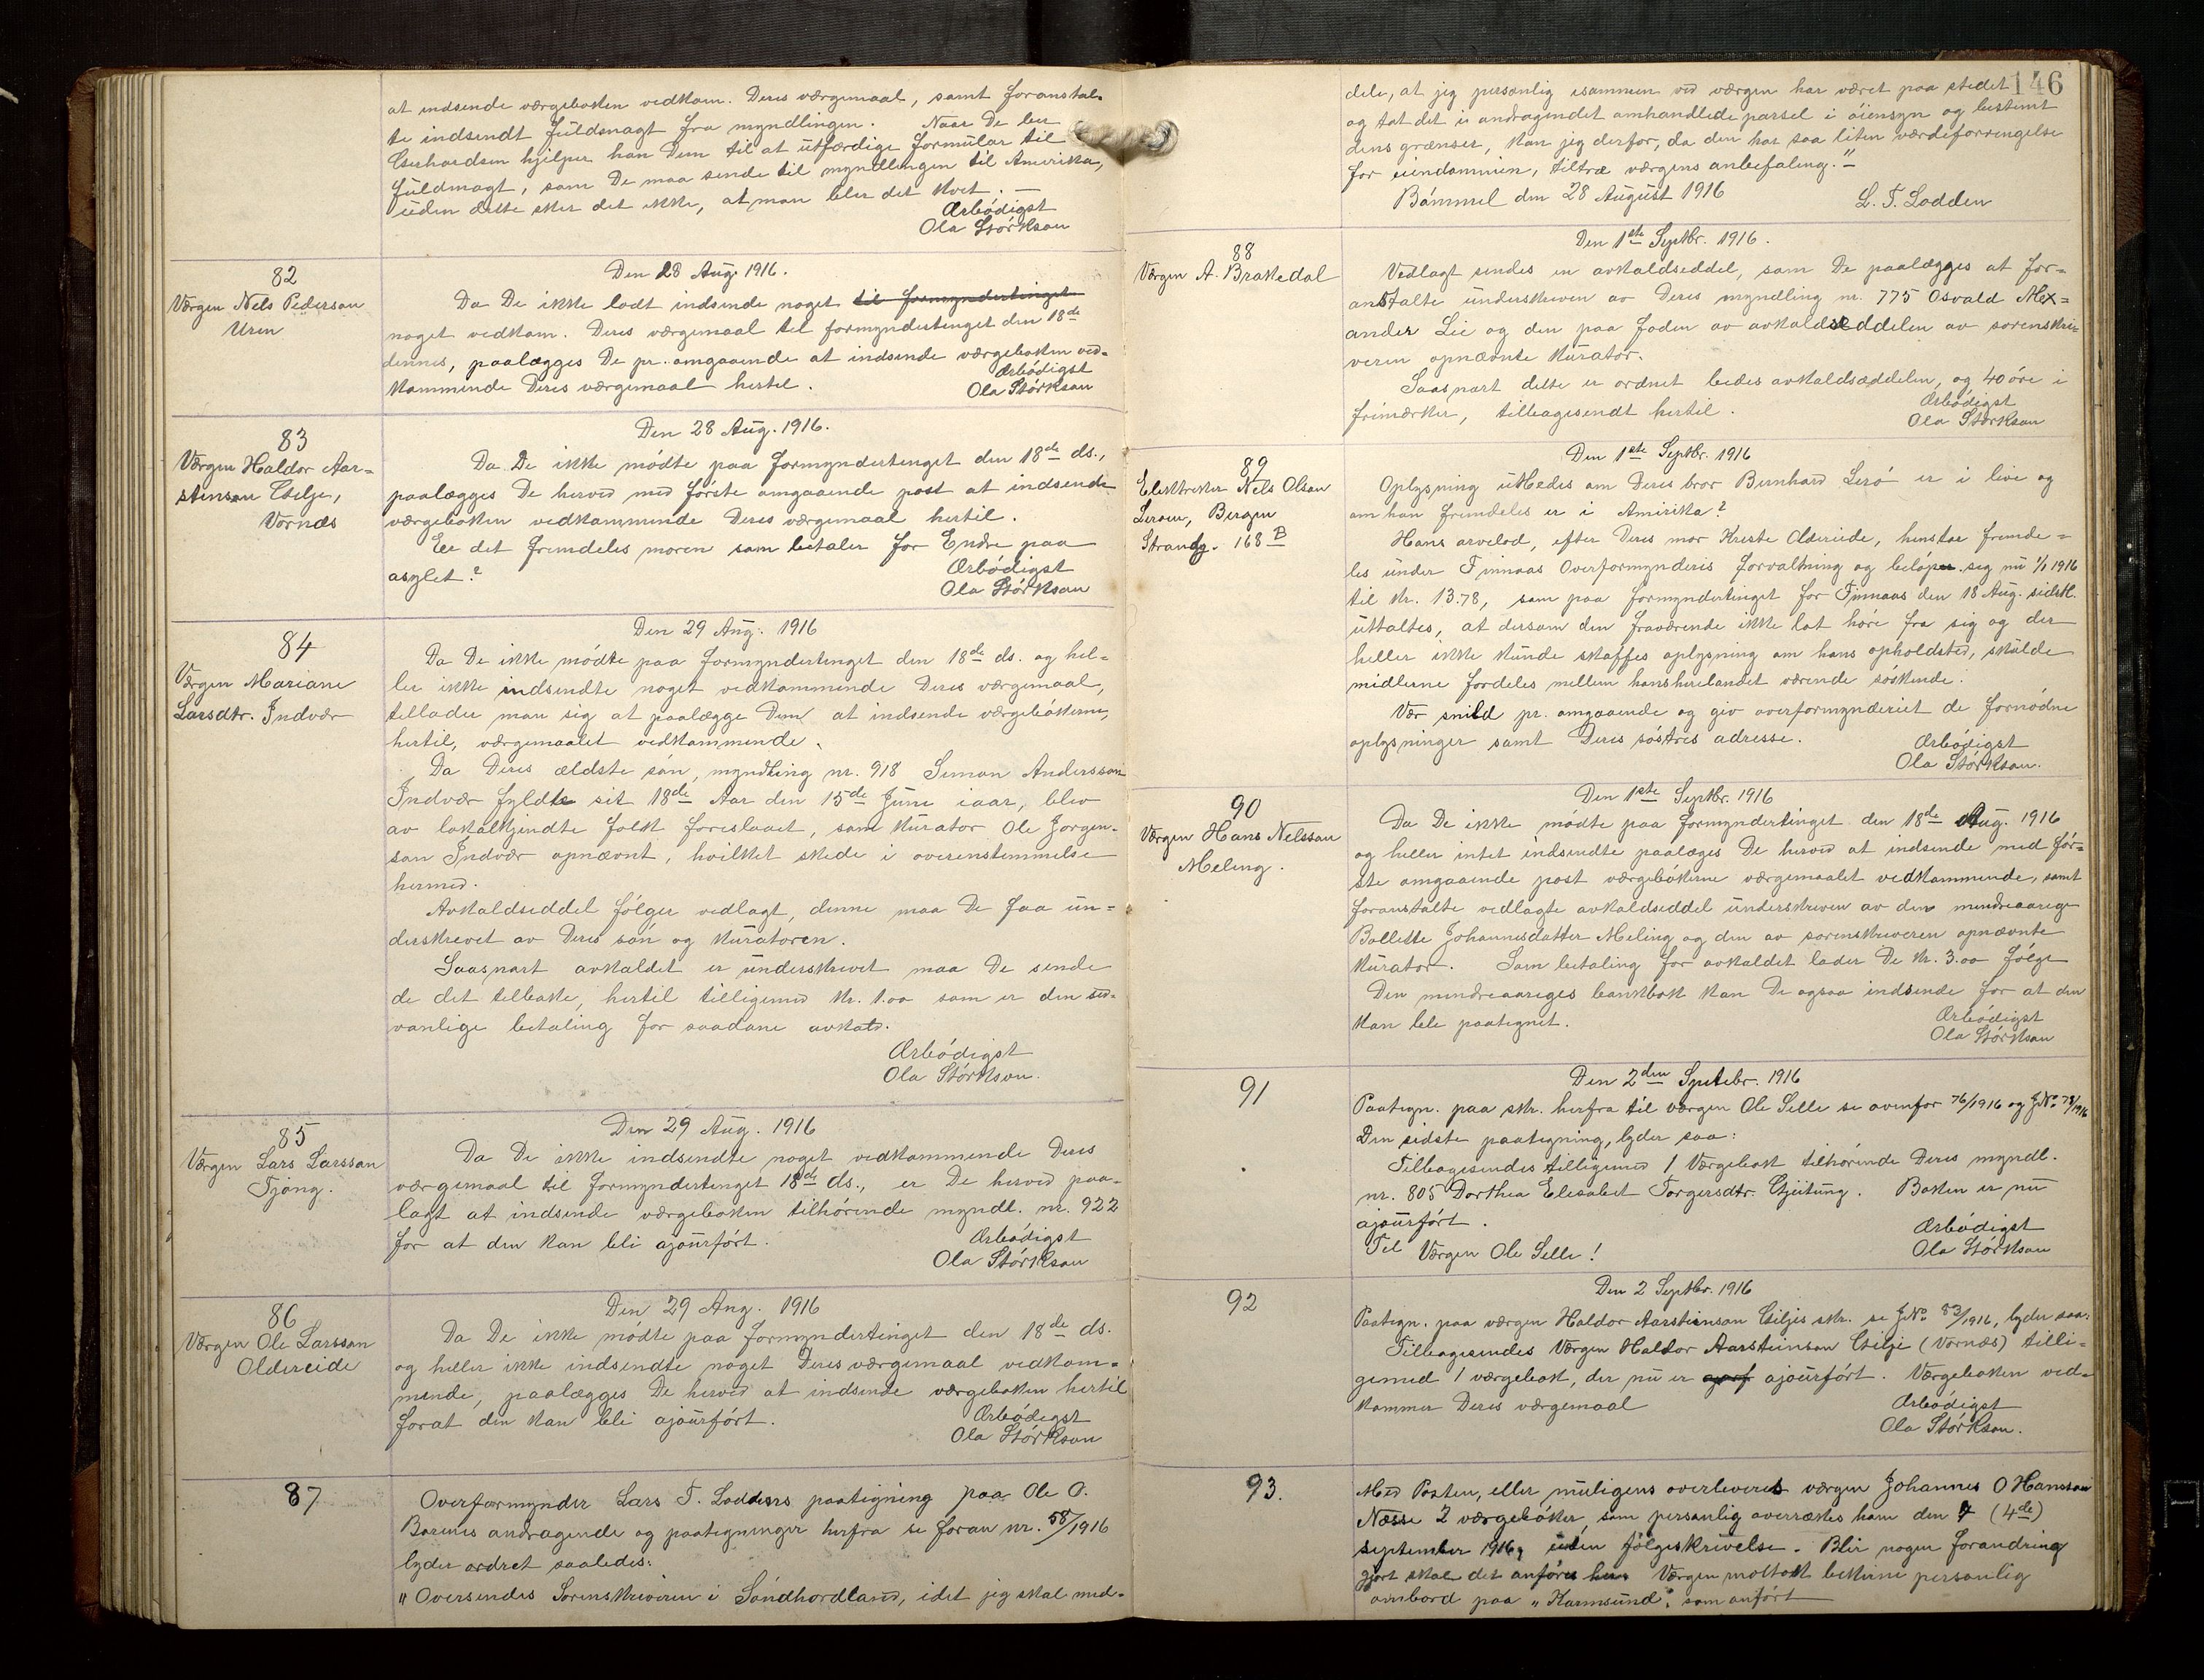 at indsende værgeboken vedkom. Deres værgemaal, samt foranstal-
te indsendt fuldmagt fra myndlingen. Naar De ber
Gerhardsen hjelper han Dem til at utfærdige formular til
fuldmagt, som De maa sende til myndlingen til Amerika,
uden dette sker det ikke, at man blir det kvit. —
Ærbödigst
Ola Störkson
82
Værgen Nels Pederson
Uren
Den 28 Aug. 1916.
Da De ikke lodt indsende noget til formyndertinget
noget vedkom. Deres værgemaal til formyndertinget den 18de
dennes, paalægges De pr. omgaaende at indsende værgeboken ved-
kommende Deres værgemaal hertil.
Ærbödigst
Ola Störkson
83
Værgen Haldor Aar-
stenson Eilje,
Vornæs
Den 28 Aug. 1916.
Da De ikke mödte paa formyndertinget den 18de ds.,
paalægges De herved med förste omgaaende post at indsende
værgeboken vedkommende Deres værgemaal hertil.
Er det fremdeles moren som betaler for Endre paa
asylet?
Ærbödigst
Ola Störkson
84
Værgen Mariane
Larsdtr. Indvær
Den 29 Aug. 1916
Da De ikke mödte paa formyndertinget den 18de ds. og hel-
ler ikke indsendte noget vedkommende Deres værgemaal,
tillader man sig at paalægge Dem at indsende værgebökerne,
hertil, værgemaalet vedkommende.
Da Deres ældste sön, myndling nr. 918 Simon Andersson
Indvær fyldte sit 18de Aar den 15de Juni iaar, blev
av lokalkjendte folk foreslaaet, som kurator Ole Jorgen-
son Indvær opnævnt, hvilket skede i overenstemmelse
hermed.
Avkaldseddel fölger vedlagt, denne maa De faa un-
derskrevet av Deres sön og kuratoren.
Saasnart avkaldet er underskrevet maa De sende
de det tilbake, hertil tilligemed Kr. 1.00 som er den sed-
vanlige betaling for saadane avkald.
Ærbödigst
Ola Störkson.
85
Værgen Lars Larsson
Tjong.
Den 29 Aug. 1916
Da De ikke indsendte noget vedkommende Deres
værgemaal til formyndertinget 18de ds., er De herved paa-
lagt at indsende værgeboken tilhörende myndl. nr. 922
for at den kan bli ajourfört.
Ærbödigst
Ola Störkson
86
Værgen Ole Larsson
Oldereide
Den 29 Aug. 1916
Da De ikke mödte paa formyndertinget den 18de ds.
og heller ikke indsendte noget Deres værgemaal vedkom-
mende, paalægges De herved at indsende værgeboken hertil
forat den kan bli ajourfört.
Ærbödigst
Ola Störkson
87
Overformynder Lars T. Loddens paategning paa Ole O.
Borenes andragende og paategninger herfra se foran nr. 58/1916
lyder ordret saaledes:
"Oversendes Sorenskriveren i Söndhordland, idet jeg skal med-
146
dele, at jeg personlig isammen med værgen har været paa stedet
og tat det i andragendet omhandlede parsel i öiensyn og bestemt
dens grænser, kan jeg derfor, da den har saa liten værdiforringelse
for eiendommen, tiltræ værgens anbefaling."
Bömmel den 28 August 1916
L. T. Lodden
88
Værgen A. Brakedal
Den 1ste Septbr. 1916.
Vedlagt sendes en avkaldseddel, som De paalægges at for-
anstalte underskreven av Deres myndling nr. 775 Osvald Alex-
ander Lie og den paa foden av avkaldseddelen av sorenskri-
veren opnævnte kurator.
Saasnart dette er ordnet bedes avkaldsæddelen, og 40 öre i
frimærker, tilbagesendt hertil.
Ærbödigst
Ola Störkson
89
Elektriker Nels Olson
Leroen, Bergen
Strandg. 168 B
Den 1ste Septbr. 1916
Oplysning utbedes om Deres bror Bernhard Lerö er i live og
om han fremdeles er i Amirika?
Hans arvelod, efter Deres mor Kirste Oldereide, henstar fremde-
les under Finnaas Overformynderis forvaltning og belöper sig nu 1/1 1916
til Kr. 13.78, som paa formyndertinget for Finnaas den 18 Aug. sidstl.
uttaltes, at dersom den fraværende ikke lot höre fra sig og der
heller ikke kunde skaffes oplysning om hans opholdsted, skulde
midlerne fordeles mellem hans herilandet værende söskende.
Vær snild pr. omgaaende og giv overformynderiet de fornödne
oplysninger samt Deres söstres adresse.
Ærbödigst
Ola Störkson.
90
Værgen Hans Nelsson
Meling.
Den 1ste Septbr. 1916
Da De ikke mödte paa formyndertinget den 18de Aug. 1916
og heller intet indsendte paalæges De herved at indsende med för-
ste omgaaende post værgebökerne værgemaalet vedkommende, samt
foranstalte vedlagte avkaldseddel underskreven av den mindreaarige
Bollette Johannesdatter Meling og den av sorenskriveren opnævnte
kurator. Som betaling for avkaldet lader De kr. 3.00 fölge
Den mindreaariges bankbok kan De ogsaa indsende for at den
kan bli paategnet.
Ærbödigst
Ola Störkson
91
Den 2den Septebr. 1916
Paategn. paa skr. herfra til værgen Ole Selle se ovenfor 76/1916 og J.No 78/1916
Den sidste paategning, lyder saa:
Tilbagesendes tilligemed 1 Værgebok tilhörende Deres myndl.
nr. 805 Dorthea Elesabet Torgersdtr. Gjeitung. Boken er nu
ajourfört.
Til Værgen Ole Selle!
Ærbödigst
Ola Störkson
92
Den 2 Septbr. 1916
Paategn. paa værgen Haldor Aarsteinson Eiljes skr. se J.No. 83/1916, lyder saa:
Tilbagesendes Værgen Haldor Aarsteinson Eilje (Vornæs) tilli-
gemed 1 værgebok, der nu er ajourfört. Værgeboken ved-
kommer Deres værgemaal
Ærbödigst
Ola Störkson.
93.
Med Posten, eller muligens overleveres værgen Johannes O Hansson
Næsse 2 værgeböker, som personlig overrækes ham den 4 (4de)
september 1916, uden fölgeskrivelse. Blir nogen forandring
gjort skal det anföres her. Værgen mottokt bökerne personlig
ombord paa "Karmsund" som anfört